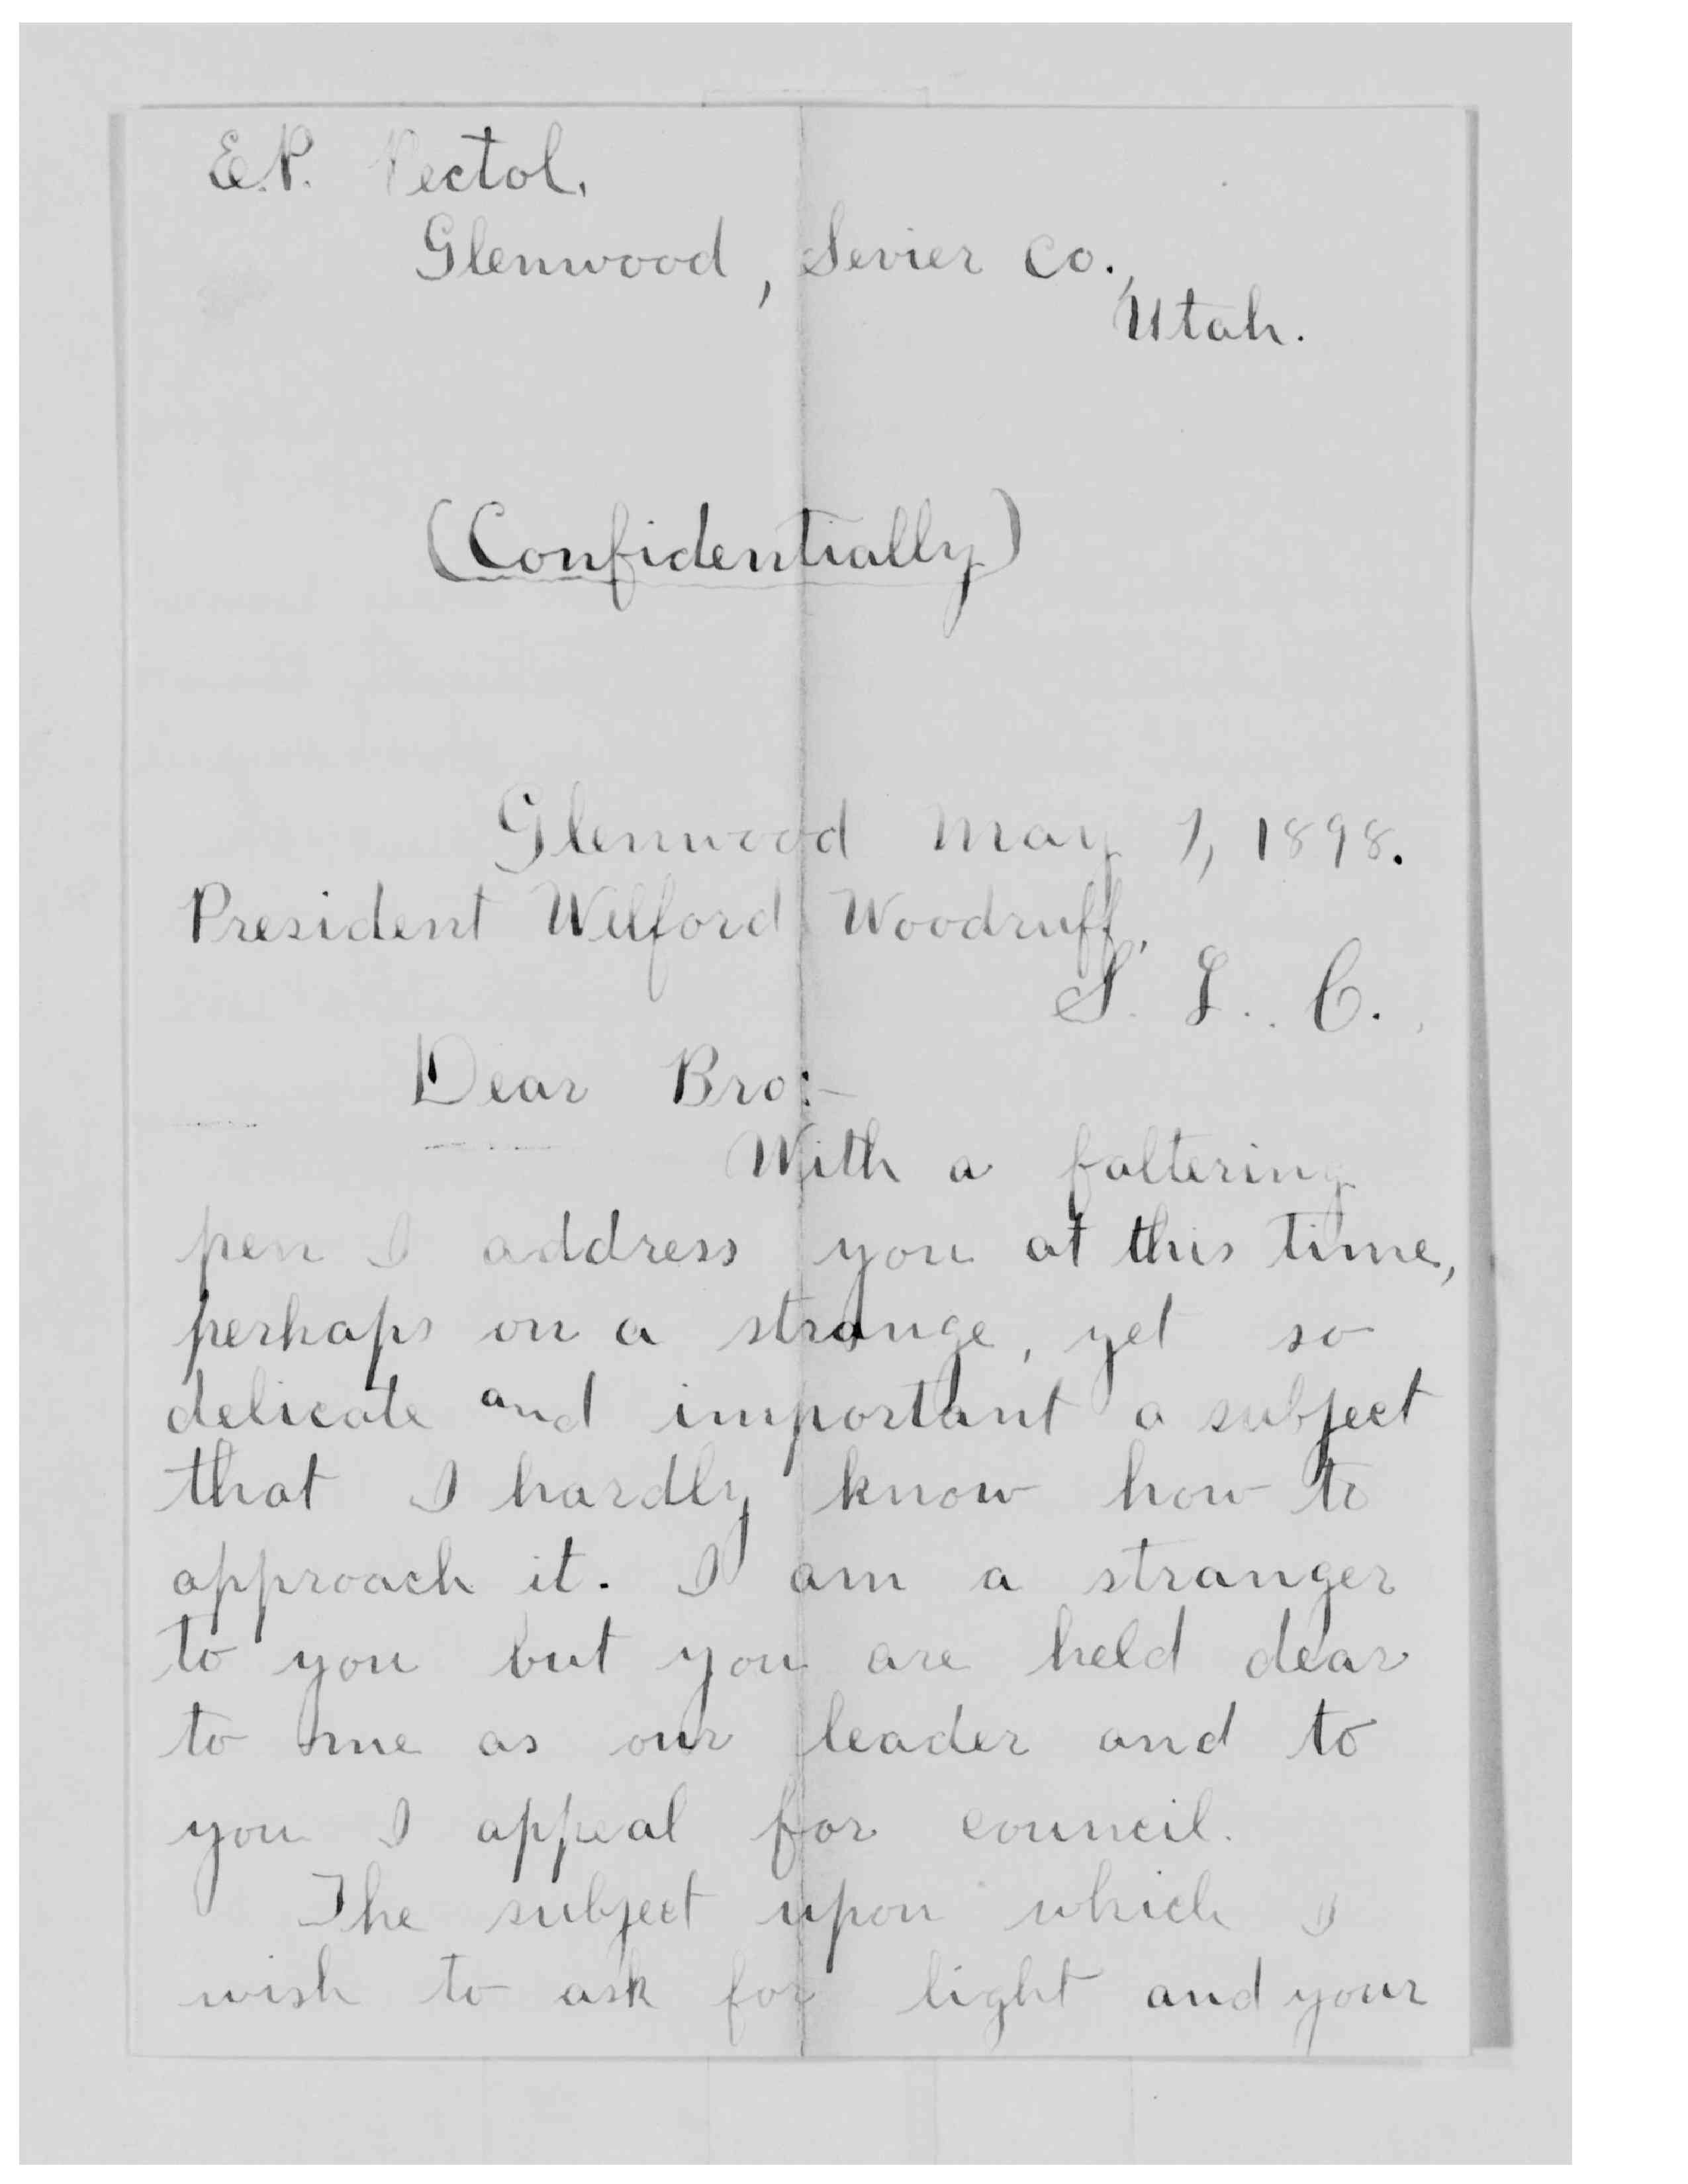 E.P. Pectol,
Glenwood, Sevier Co.,
Utah.
(Confidentially)
Glenwood May 7, 1898.
President Wilford Woodruff,
S. L. C.
Dear Bro:-
With a faltering
pen I address you at this time,
perhaps on a strange, yet so
delicate and important a subject
that I hardly know how to
approach it. I am a stranger
to you but you are held dear
to me as our leader and to
you I appeal for council.
The subject upon which I
wish to ask for light and your